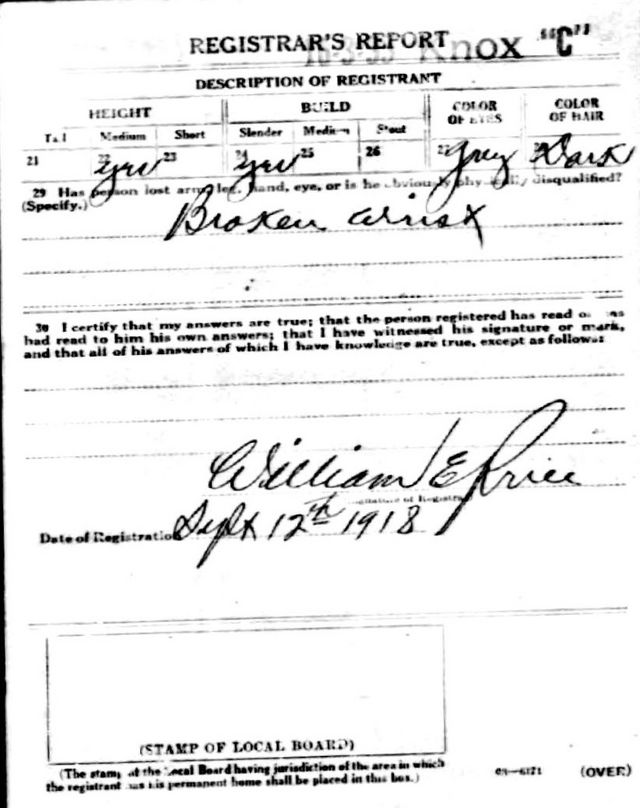 REGISTRAR'S REPORT Knox "C"
DESCRIPTION OF REGISTRANT
HEIGHT BUILD COLOR OF EYES COLOR OF HAIR
Tall Medium Short Slender Medium Stout
21 22 yes 23 24 yes 25 26 27 Grey 28 Dark
29 Has person lost arm, leg, hand, eye, or is he obviously physically disqualified?
(Specify.) Broken wrist
30 I certify that my answers are true; that the person registered has read or has
had read to him his own answers; that I have witnessed his signature or mark,
and that all of his answers of which I have knowledge are true, except as follows:
William E Price
Signature of Registrar
Date of Registration Sept 12th 1918
(STAMP OF LOCAL BOARD)
(The stamp of the Local Board having jurisdiction of the area in which
the registrant has his permanent home shall be placed in this box.)
03—6171 (OVER)